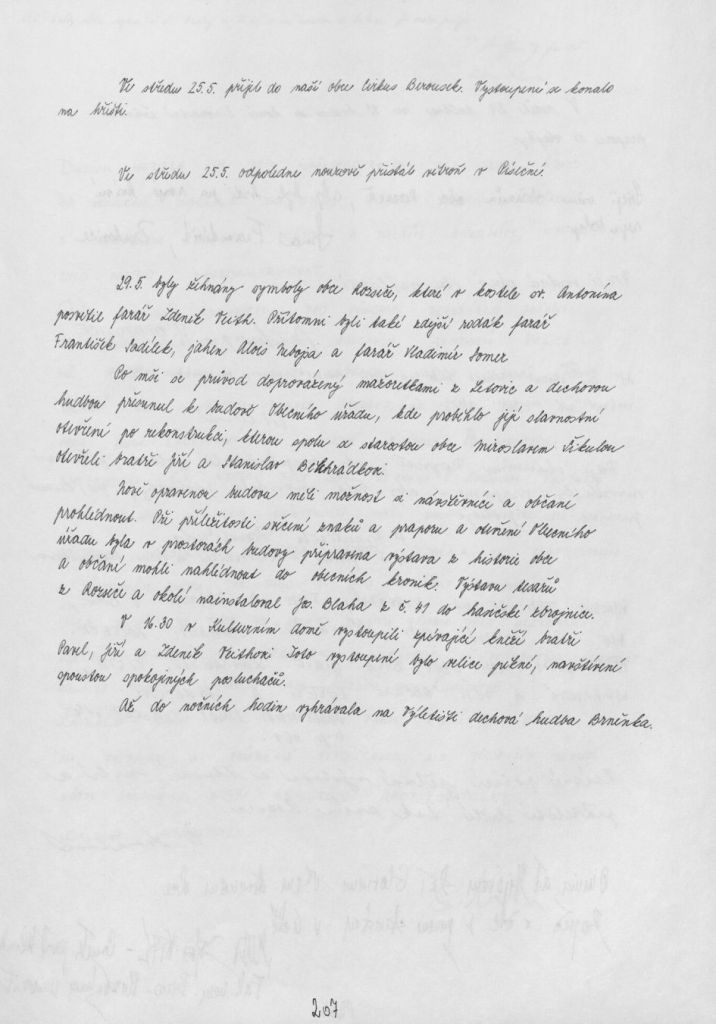 Ve středu 25.5. přijel do naší obce Cirkus Berousek. Vystoupení se konalo
na hřišti.
Ve středu 25.5. odpoledne nouzově přistál větroň v Písečné.
29.5. byly žehnány symboly obce Rozseče, které v kostele sv. Antonína
posvětil farář Zdeněk Veith. Přítomni byli také zdejší rodák farář
František Sadílek, jáhen Alois Nebojsa a farář Vladimír Somer
Po mši se průvod doprovázený mažoretkami z Letovic a dechovou
hudbou přesunul k budově Obecního úřadu, kde proběhlo její slavnostní
otevření po rekonstrukci, kterou spolu se starostou obce Miroslavem Šikulou
otevřeli bratři Jiří a Stanislav Běhrádkovi.
Nově opravenou budovu měli možnost si návštěvníci a občané
prohlédnout. Při příležitosti svěcení znaků a praporu a otevření Obecního
úřadu byla v prostorách budovy připravena výstava z historie obce
a občané mohli nahlédnout do obecních kronik. Výstavu tesařů
z Rozseče a okolí nainstaloval Jos. Blaha z č. 41 do hasičské zbrojnice.
V 16.30 v Kulturním domě vystoupili zpívající kněží bratři
Pavel, Jiří a Zdeněk Veithovi Toto vystoupení bylo velice pěkné, navštívení
spoustou spokojných posluchačů.
Až do nočních hodin vyhrávala na Výletišti dechová hudba Brněnka.
207